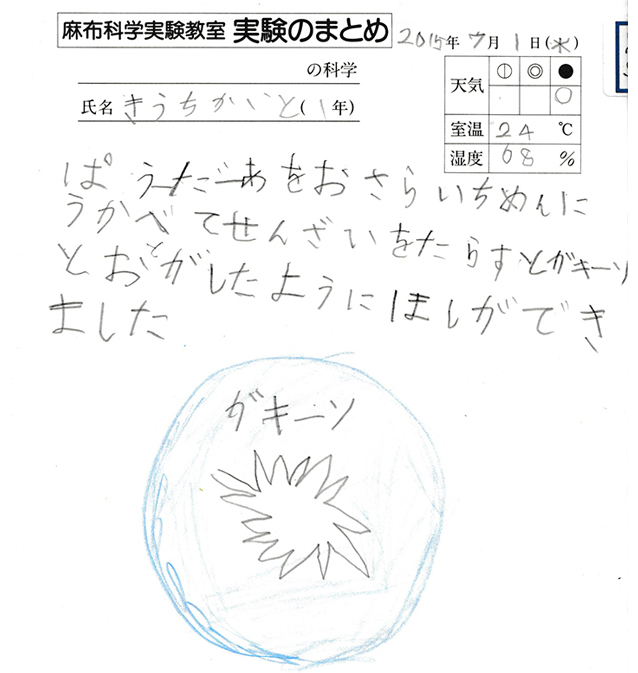 麻布科学実験教室 実験のまとめ 2015年7月1日(水)
の科学
氏名 きうちかいと(1年)
天気 ◐ ◎ ●
○
室温 24 ℃
湿度 68 %
ぱうだーあをおさらいちめんに
うかべてせんざいをたらすとガキーソ
とおとがしたようにほしができ
ました
ガキーソ